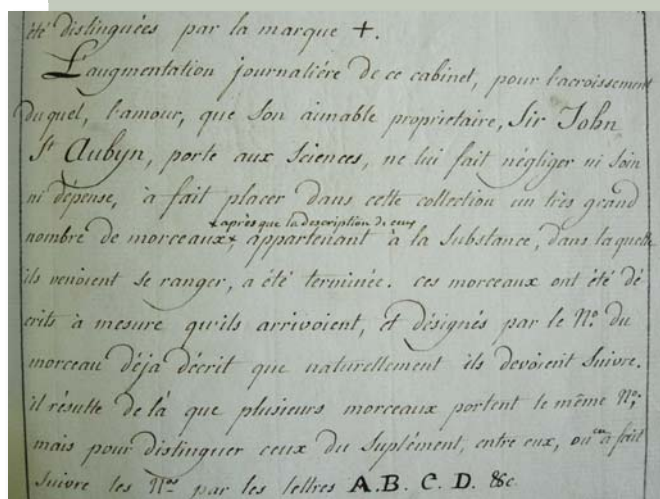 été distinguées par la marque +.
L'augmentation journalière de ce cabinet, pour l'acroissement
duquel, l'amour, que son aimable proprietaire, Sir John
St Aubyn, porte aux Sciences, ne lui fait négliger ni soin
ni dépense, à fait placer dans cette collection un très grand
+ après que la description de ceux
nombre de morceaux+, appartenant à la Substance, dans laquelle
ils venoient se ranger, a été terminée. ces morceaux ont été dé
crits à mesure qu'ils arrivoient, et désignés par le No. du
morceau déja décrit que naturellement ils devoient suivre.
il résulte de là que plusieurs morceaux portent le même No;
mais pour distinguer ceux du Suplément, entre eux, on en à fait
suivre les Nos par les lettres A.B.C.D. &c.